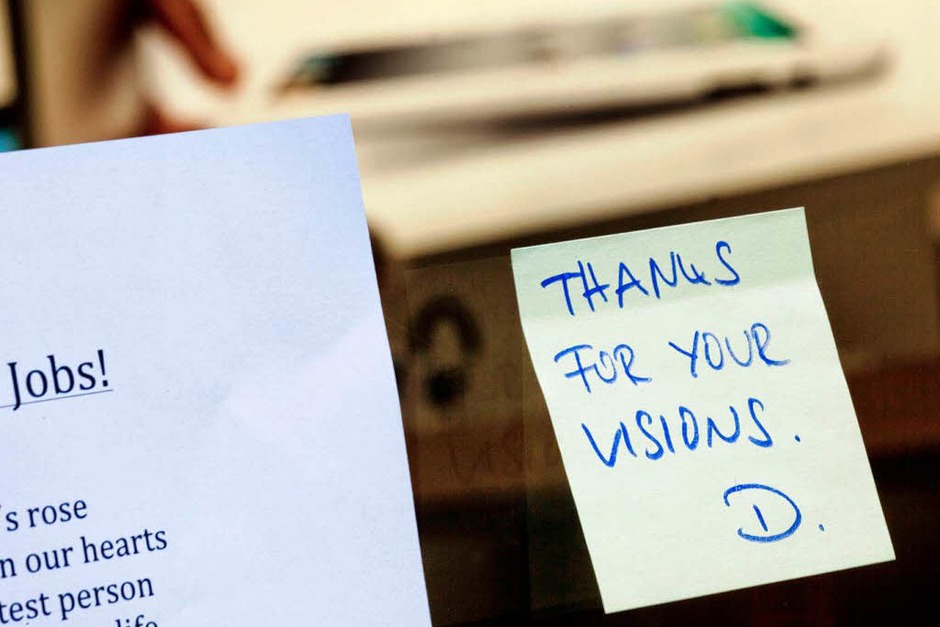 Jobs!
's rose
n our hearts
test person
life
THANKS
FOR YOUR
VISIONS.
D.